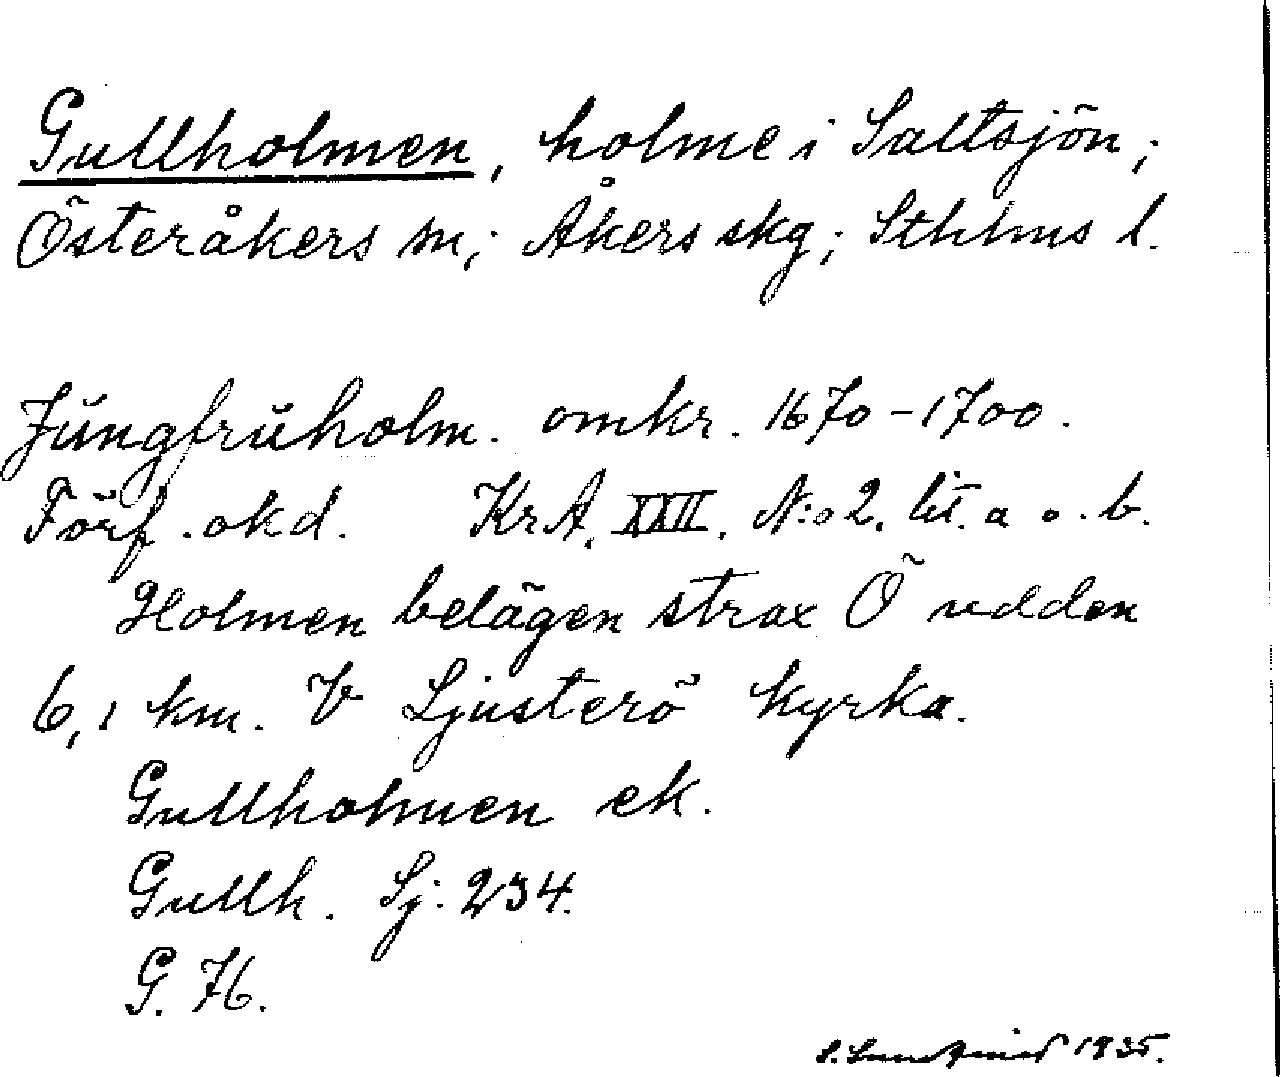 Gullholmen, holme i Saltsjön;
Österåkers sn; Åkers skg; Sthlms l.
Jŭngfrŭholm. omkr. 1670-1700.
Förf. okd. KrA. XXII. N:o 2. lit. a o. b.
Holmen belägen strax Ö udden
6,1 km. V Ljusterö kyrka.
Gullholmen ek.
Gullh. Sj: 234.
G. 76.
1935.